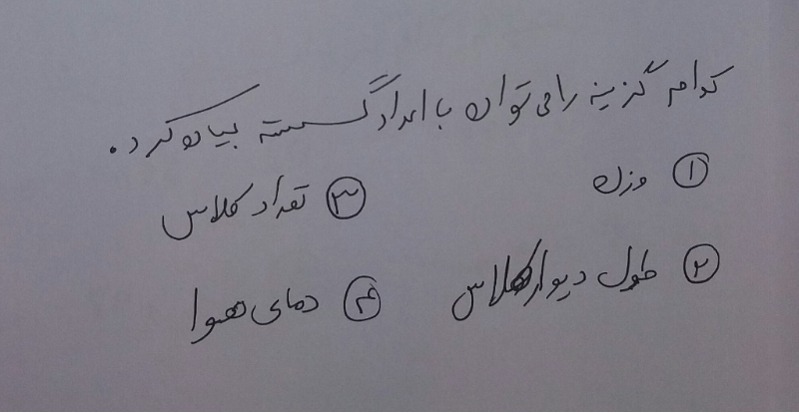 کدام گزینه را می توان با اعداد گسسته بیان کرد.
① وزن
③ تعداد کلاس
② طول دیوار کلاس
④ دمای هوا